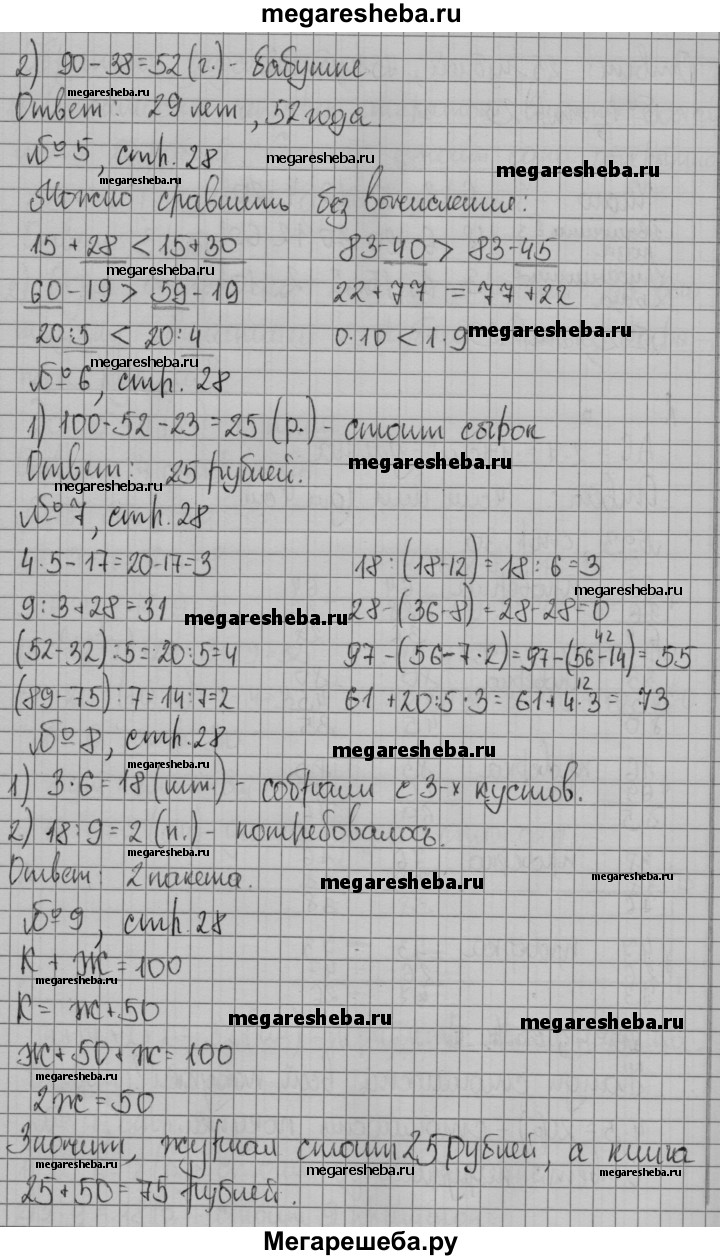 megaresheba.ru
2) 90 - 38 = 52 (г.) - бабушке
megaresheba.ru
Ответ: 29 лет, 52 года.
№ 5, стр. 28
megaresheba.ru
megaresheba.ru
megaresheba.ru
Можно сравнить без вычисления:
15 + 28 < 15 + 30   83 - 40 > 83 - 45
megaresheba.ru
60 - 19 > 59 - 19   22 + 77 = 77 + 22
20 : 5 < 20 : 4   0 · 10 < 1 · 9
megaresheba.ru
megaresheba.ru
№ 6, стр. 28
1) 100 - 52 - 23 = 25 (р.) - стоит сырок
Ответ: 25 рублей.
megaresheba.ru
megaresheba.ru
№ 7, стр. 28
4 · 5 - 17 = 20 - 17 = 3   18 : (18 - 12) = 18 : 6 = 3
megaresheba.ru
9 : 3 + 28 = 31   28 - (36 - 8) = 28 - 28 = 0
megaresheba.ru
42
(52 - 32) : 5 = 20 : 5 = 4   97 - (56 - 7 · 2) = 97 - (56 - 14) = 55
12
(89 - 75) : 7 = 14 : 7 = 2   61 + 20 : 5 · 3 = 61 + 4 · 3 = 73
№ 8, стр. 28
megaresheba.ru
1) 3 · 6 = 18 (шт.) - собрали с 3-х кустов.
2) 18 : 9 = 2 (п.) - потребовалось.
megaresheba.ru
Ответ: 2 пакета.
megaresheba.ru
megaresheba.ru
№ 9, стр. 28
К + Ж = 100
megaresheba.ru
К = Ж + 50
megaresheba.ru
megaresheba.ru
Ж + 50 + Ж = 100
megaresheba.ru
2Ж = 50
Значит, журнал стоит 25 рублей, а книга
megaresheba.ru
megaresheba.ru
megaresheba.ru
25 + 50 = 75 рублей.
Мегарешеба.ру